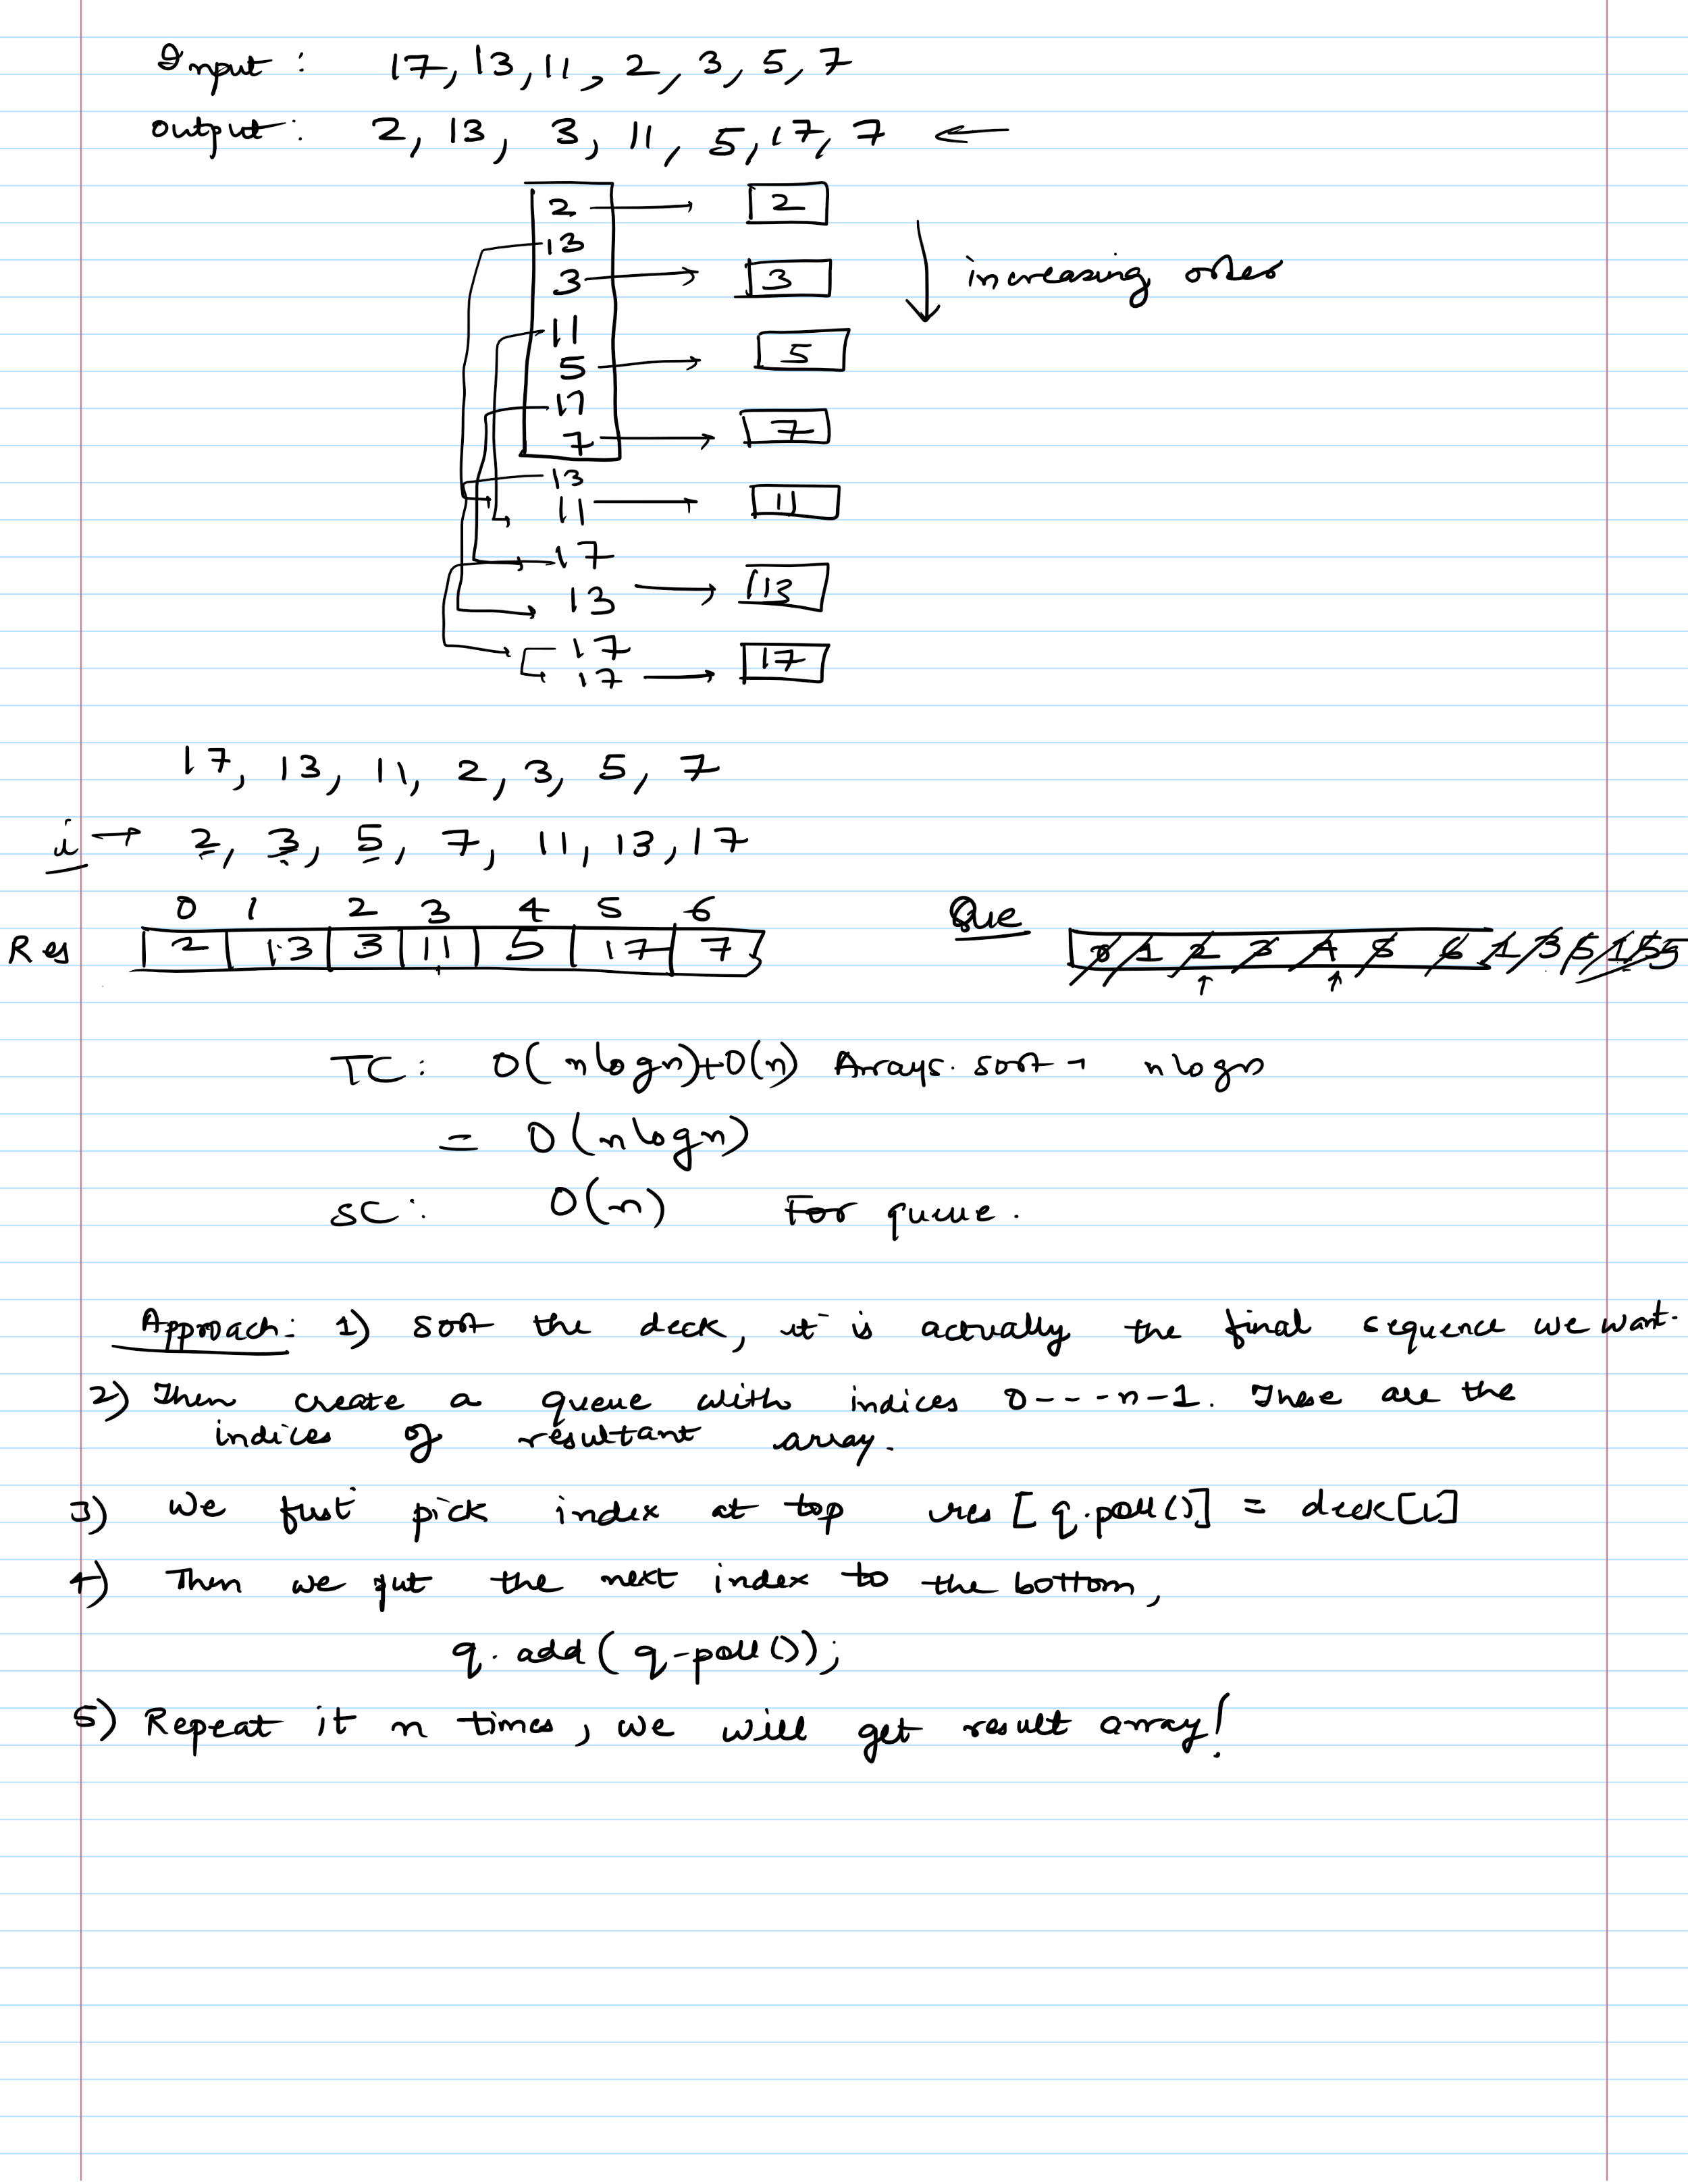 Input : 17, 13, 11, 2, 3, 5, 7
output : 2, 13, 3, 11, 5, 17, 7 ←
2 → 2
13
3 → 3
increasing order
11
5 → 5
17
7 → 7
13
11 → 11
17
13 → 13
17
17 → 17
17, 13, 11, 2, 3, 5, 7
i → 2, 3, 5, 7, 11, 13, 17
0 1 2 3 4 5 6
Que
Res 2 13 3 11 5 17 7
0 1 2 3 4 5 6 1 3 5 1 5 5
TC : O(nlogn)+O(n) Arrays.sort → nlogn
= O(nlogn)
SC : O(n) For queue.
Approach: 1) sort the deck, it is actually the final sequence we want.
2) Then create a queue with indices 0---n-1. These are the
indices of resultant array.
3) We first pick index at top res[q.poll()] = deck[i]
4) Then we put the next index to the bottom,
q.add(q.poll());
5) Repeat it n times, we will get result array!